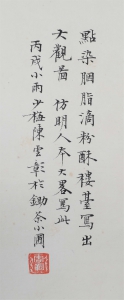 點染胭脂滴粉酥樓臺寫出
大觀圖 仿明人本大畧寫此
丙戌小雨少梅陳雲彰於鋤茶小圃